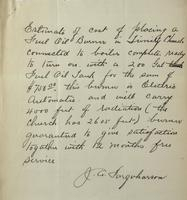 Estimate of cost of placing a
Fuel Oil Burner in Trinity Church
connected to boiler complete ready
to turn on with a 200 Gal
Fuel Oil Tank for the sum of
this burner is Electric
Automatic and will carry
4000 feet of radiation (the
church has 2605 feet) burner
guaranteed to give satisfaction
together with 12 months free
service
J. A.